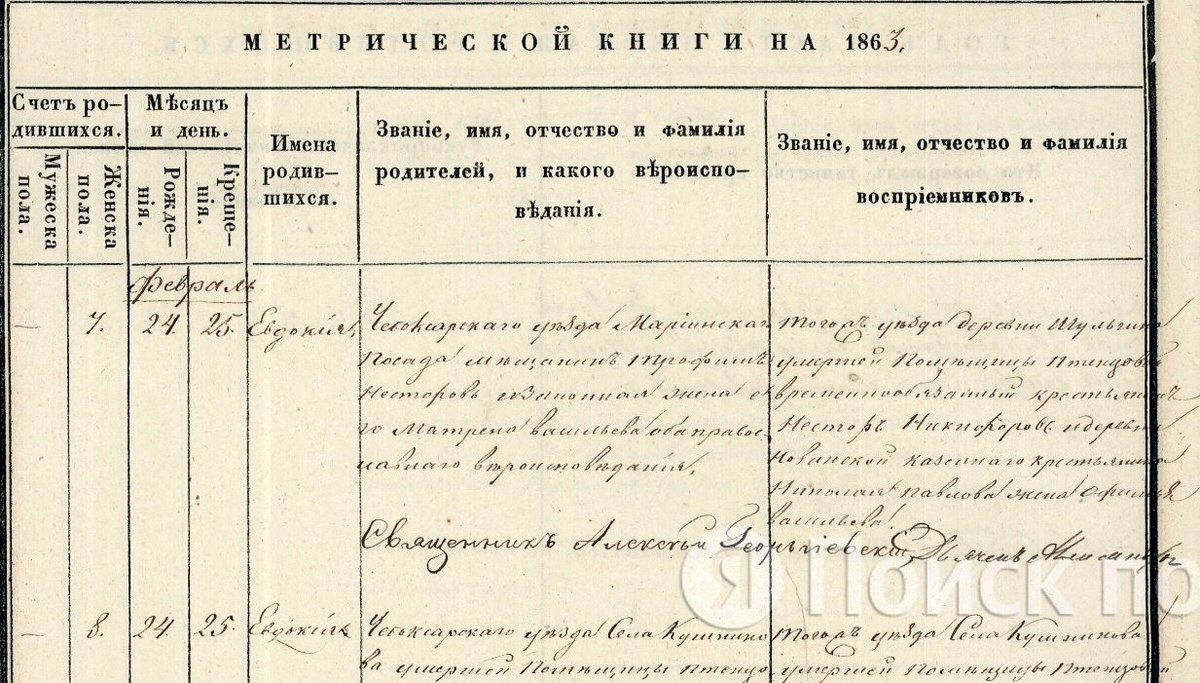 МЕТРИЧЕСКОЙ КНИГИ НА 1863,
Счетъ ро-
дившихся.
Мужеска
пола.
Женска
пола.
Мѣсяцъ
и день.
Рожде-
нія.
Креще-
нія.
Имена
родив-
шихся.
Званіе, имя, отчество и фамилія
родителей, и какого вѣроиспо-
вѣданія.
Званіе, имя, отчество и фамилія
воспріемниковъ.
Февраль
— 7. 24. 25. Евдокія,
Чебоксарскаго уѣзда Маріинскаг
Посада мѣщанинъ Трофимъ
Несторовъ изаконная жена е
го Матрена Васильева оба правос-
лавнаго вѣроисповѣданія,
Тогожъ уѣзда деревни Шульгина
умершей Помѣщицы Птенцовой
временнообязатный крестьянинъ
Несторъ Никифоровъ идеревни
казеннаго крестьянина
Николая Павлова жена Офимья
Васильева.
Священникъ Алексѣй Георгіевскій,
— 8. 24. 25. Евдокія
Чебоксарскаго уѣзда Села Кушнико
ва умершей Помѣщицы Птенцо
Тогожъ уѣзда Села Кушникова
умершей Помѣщицы Птенцовой
Я Поиск по